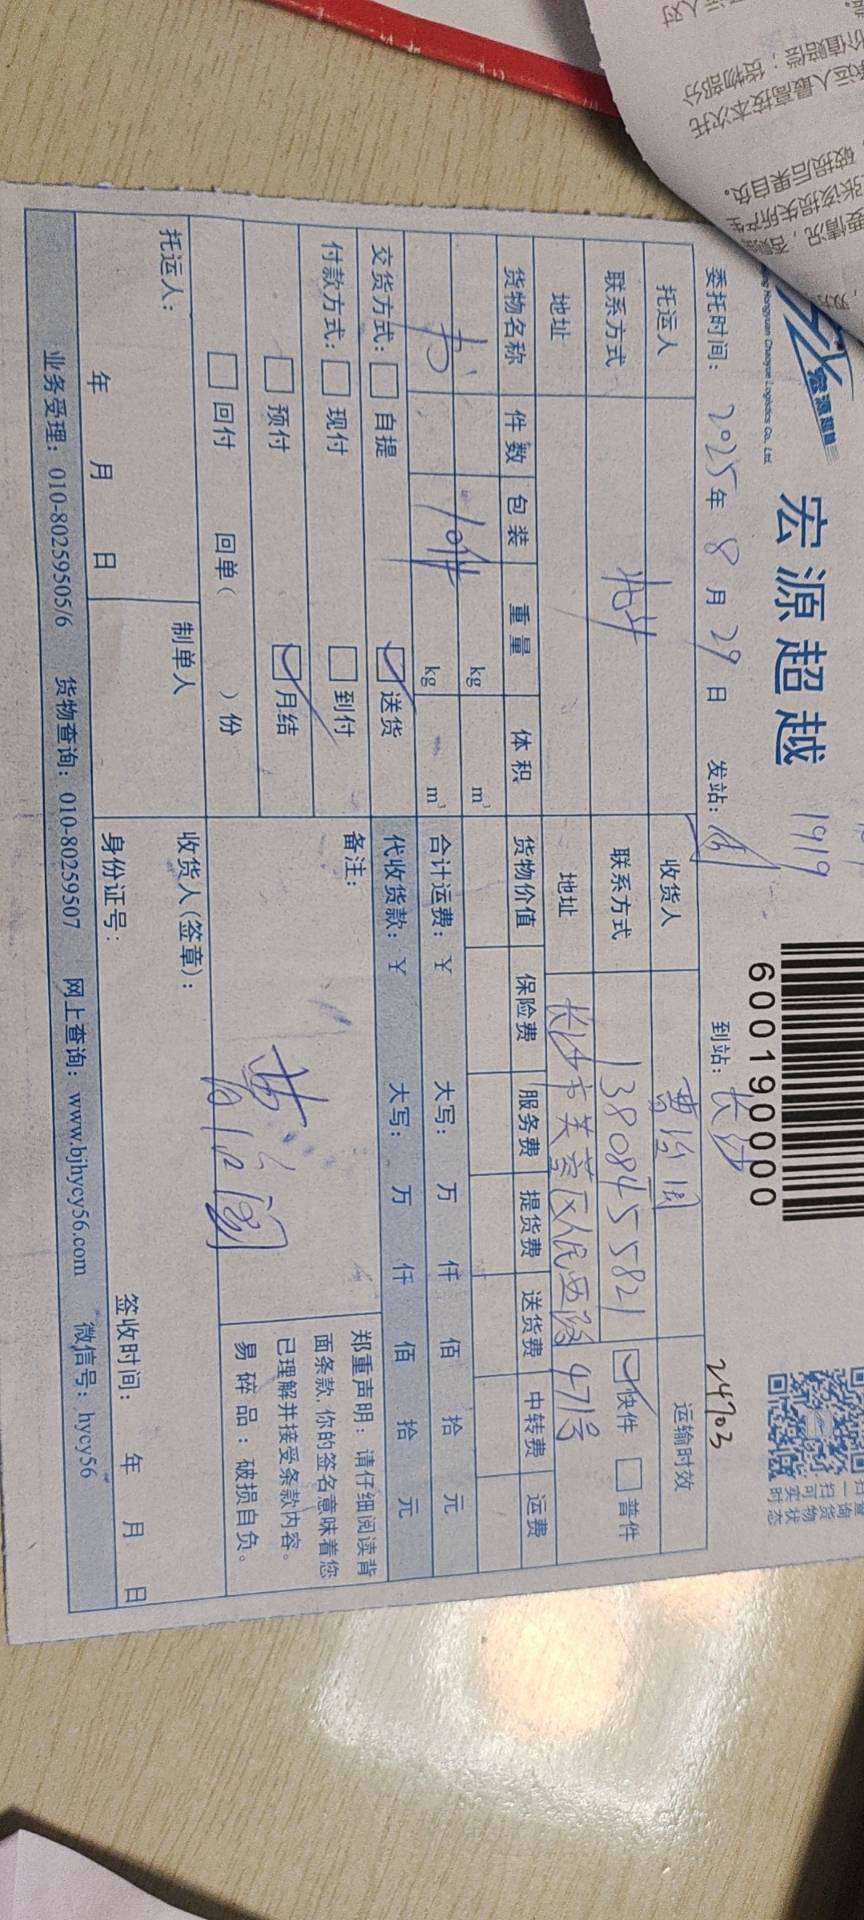 宏源超越
1919
600190000
扫一扫
查询货物
可实时状态
24703
委托时间：2025年8月29日 发站： 到站：长沙
托运人 收货人 运输时效
联系方式 联系方式 13808455821 快件 普件
地址 地址 长沙市芙蓉区人民西路471号
货物名称 件数 包装 重量 体积 货物价值 保险费 服务费 提货费 送货费 中转费 运费
kg m³
书 10件 kg m³ 合计运费：¥ 大写： 万 仟 佰 拾 元
交货方式： 自提 送货 代收货款：¥ 大写： 万 仟 佰 拾 元
付款方式： 现付 到付 备注：
预付 月结
回付 回单（ ）份
郑重声明：请仔细阅读背
面条款，你的签名意味着您
已理解并接受条款内容。
易碎品：破损自负。
托运人： 制单人 收货人(签章)：
年 月 日 身份证号： 签收时间： 年 月 日
业务受理：010-80259505/6 货物查询：010-80259507 网上查询：www.bjhycy56.com 微信号：hycy56